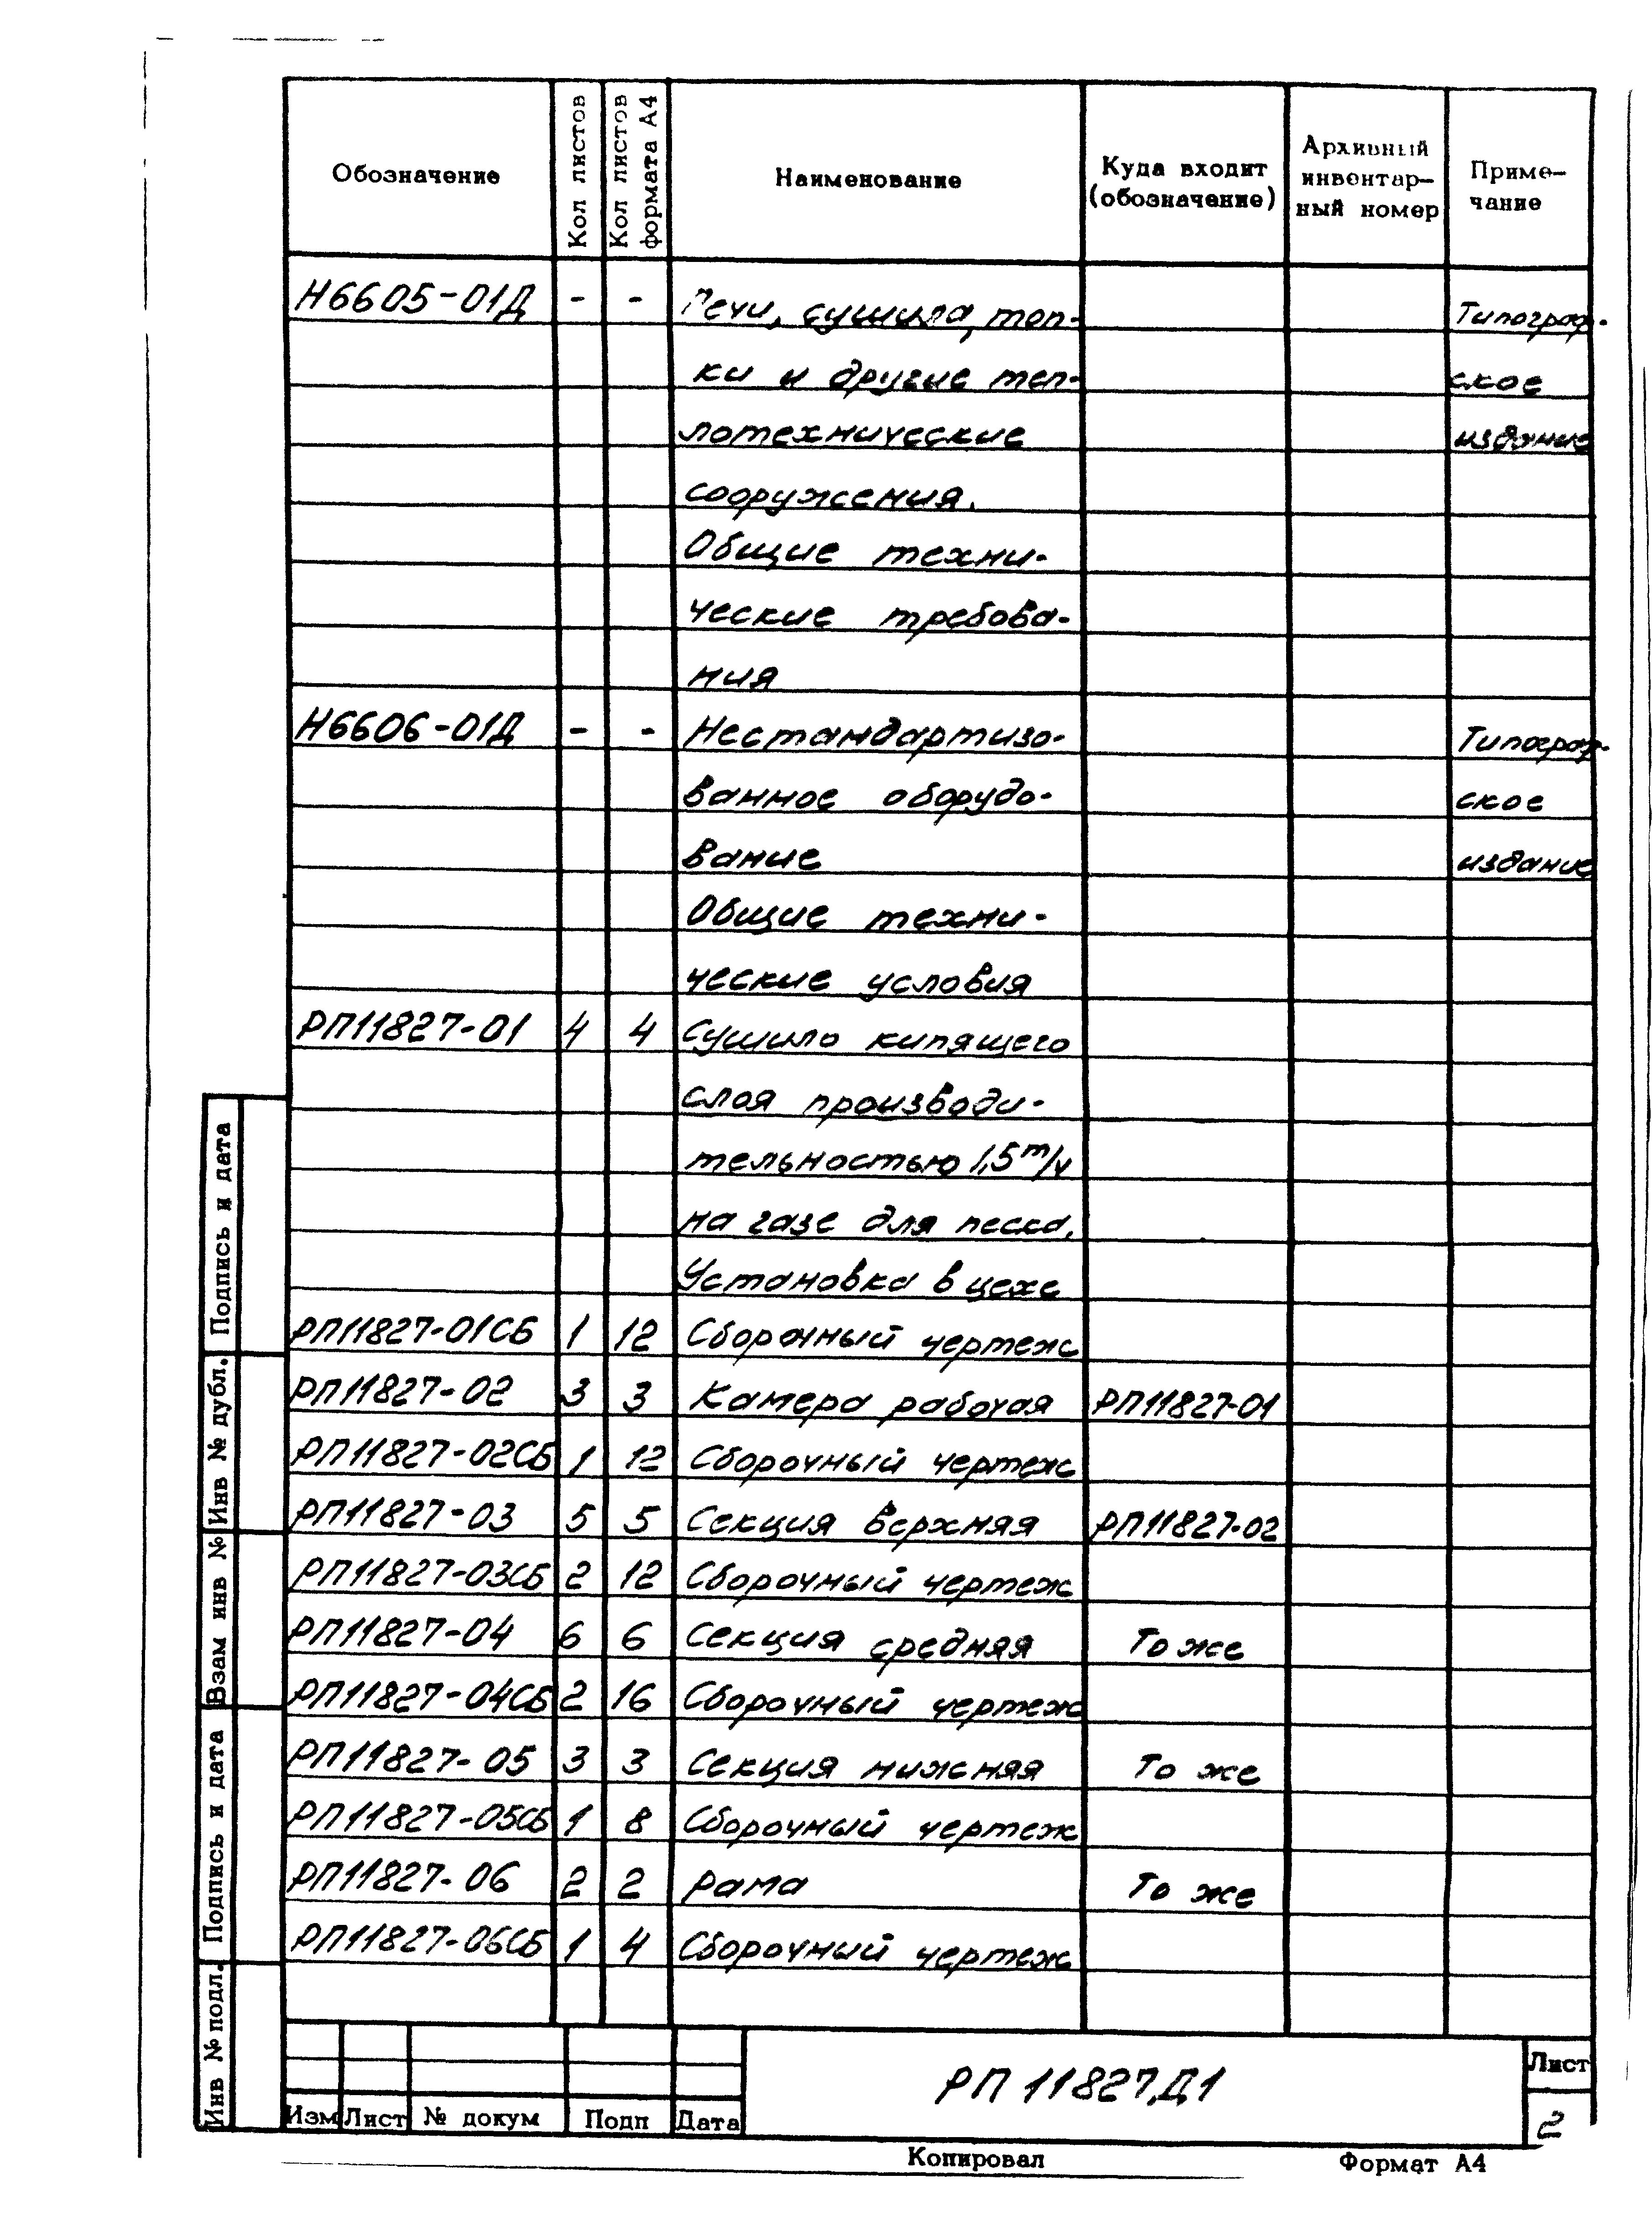 Обозначение
Кол листов
Кол листов формата А4
Наименование
Куда входит (обозначение)
Архивный инвентар- ный номер
Приме- чание
Н6605-01Д - - Печи, сушила, топ- Типограф-
ки и другие теп- ское
лотехнические издание
сооружения.
Общие техни-
ческие требова-
ния
Н6606-01Д - - Нестандартизо- Типограф-
ванное оборудо- ское
вание издание
Общие техни-
ческие условия
РП11827-01 4 4 Сушило кипящего
слоя производи-
тельностью 1,5 т/ч
на газе для песка.
Установка в цехе
РП11827-01СБ 1 12 Сборочный чертеж
РП11827-02 3 3 Камера рабочая РП11827-01
РП11827-02СБ 1 12 Сборочный чертеж
РП11827-03 5 5 Секция верхняя РП11827-02
РП11827-03СБ 2 12 Сборочный чертеж
РП11827-04 6 6 Секция средняя То же
РП11827-04СБ 2 16 Сборочный чертеж
РП11827-05 3 3 Секция нижняя То же
РП11827-05СБ 1 8 Сборочный чертеж
РП11827-06 2 2 Рама То же
РП11827-06СБ 1 4 Сборочный чертеж
Подпись и дата
Инв № дубл.
Взам инв №
Подпись и дата
Инв № подл.
Изм Лист № докум Подп Дата
РП 11827Д1
Лист
2
Копировал Формат А4